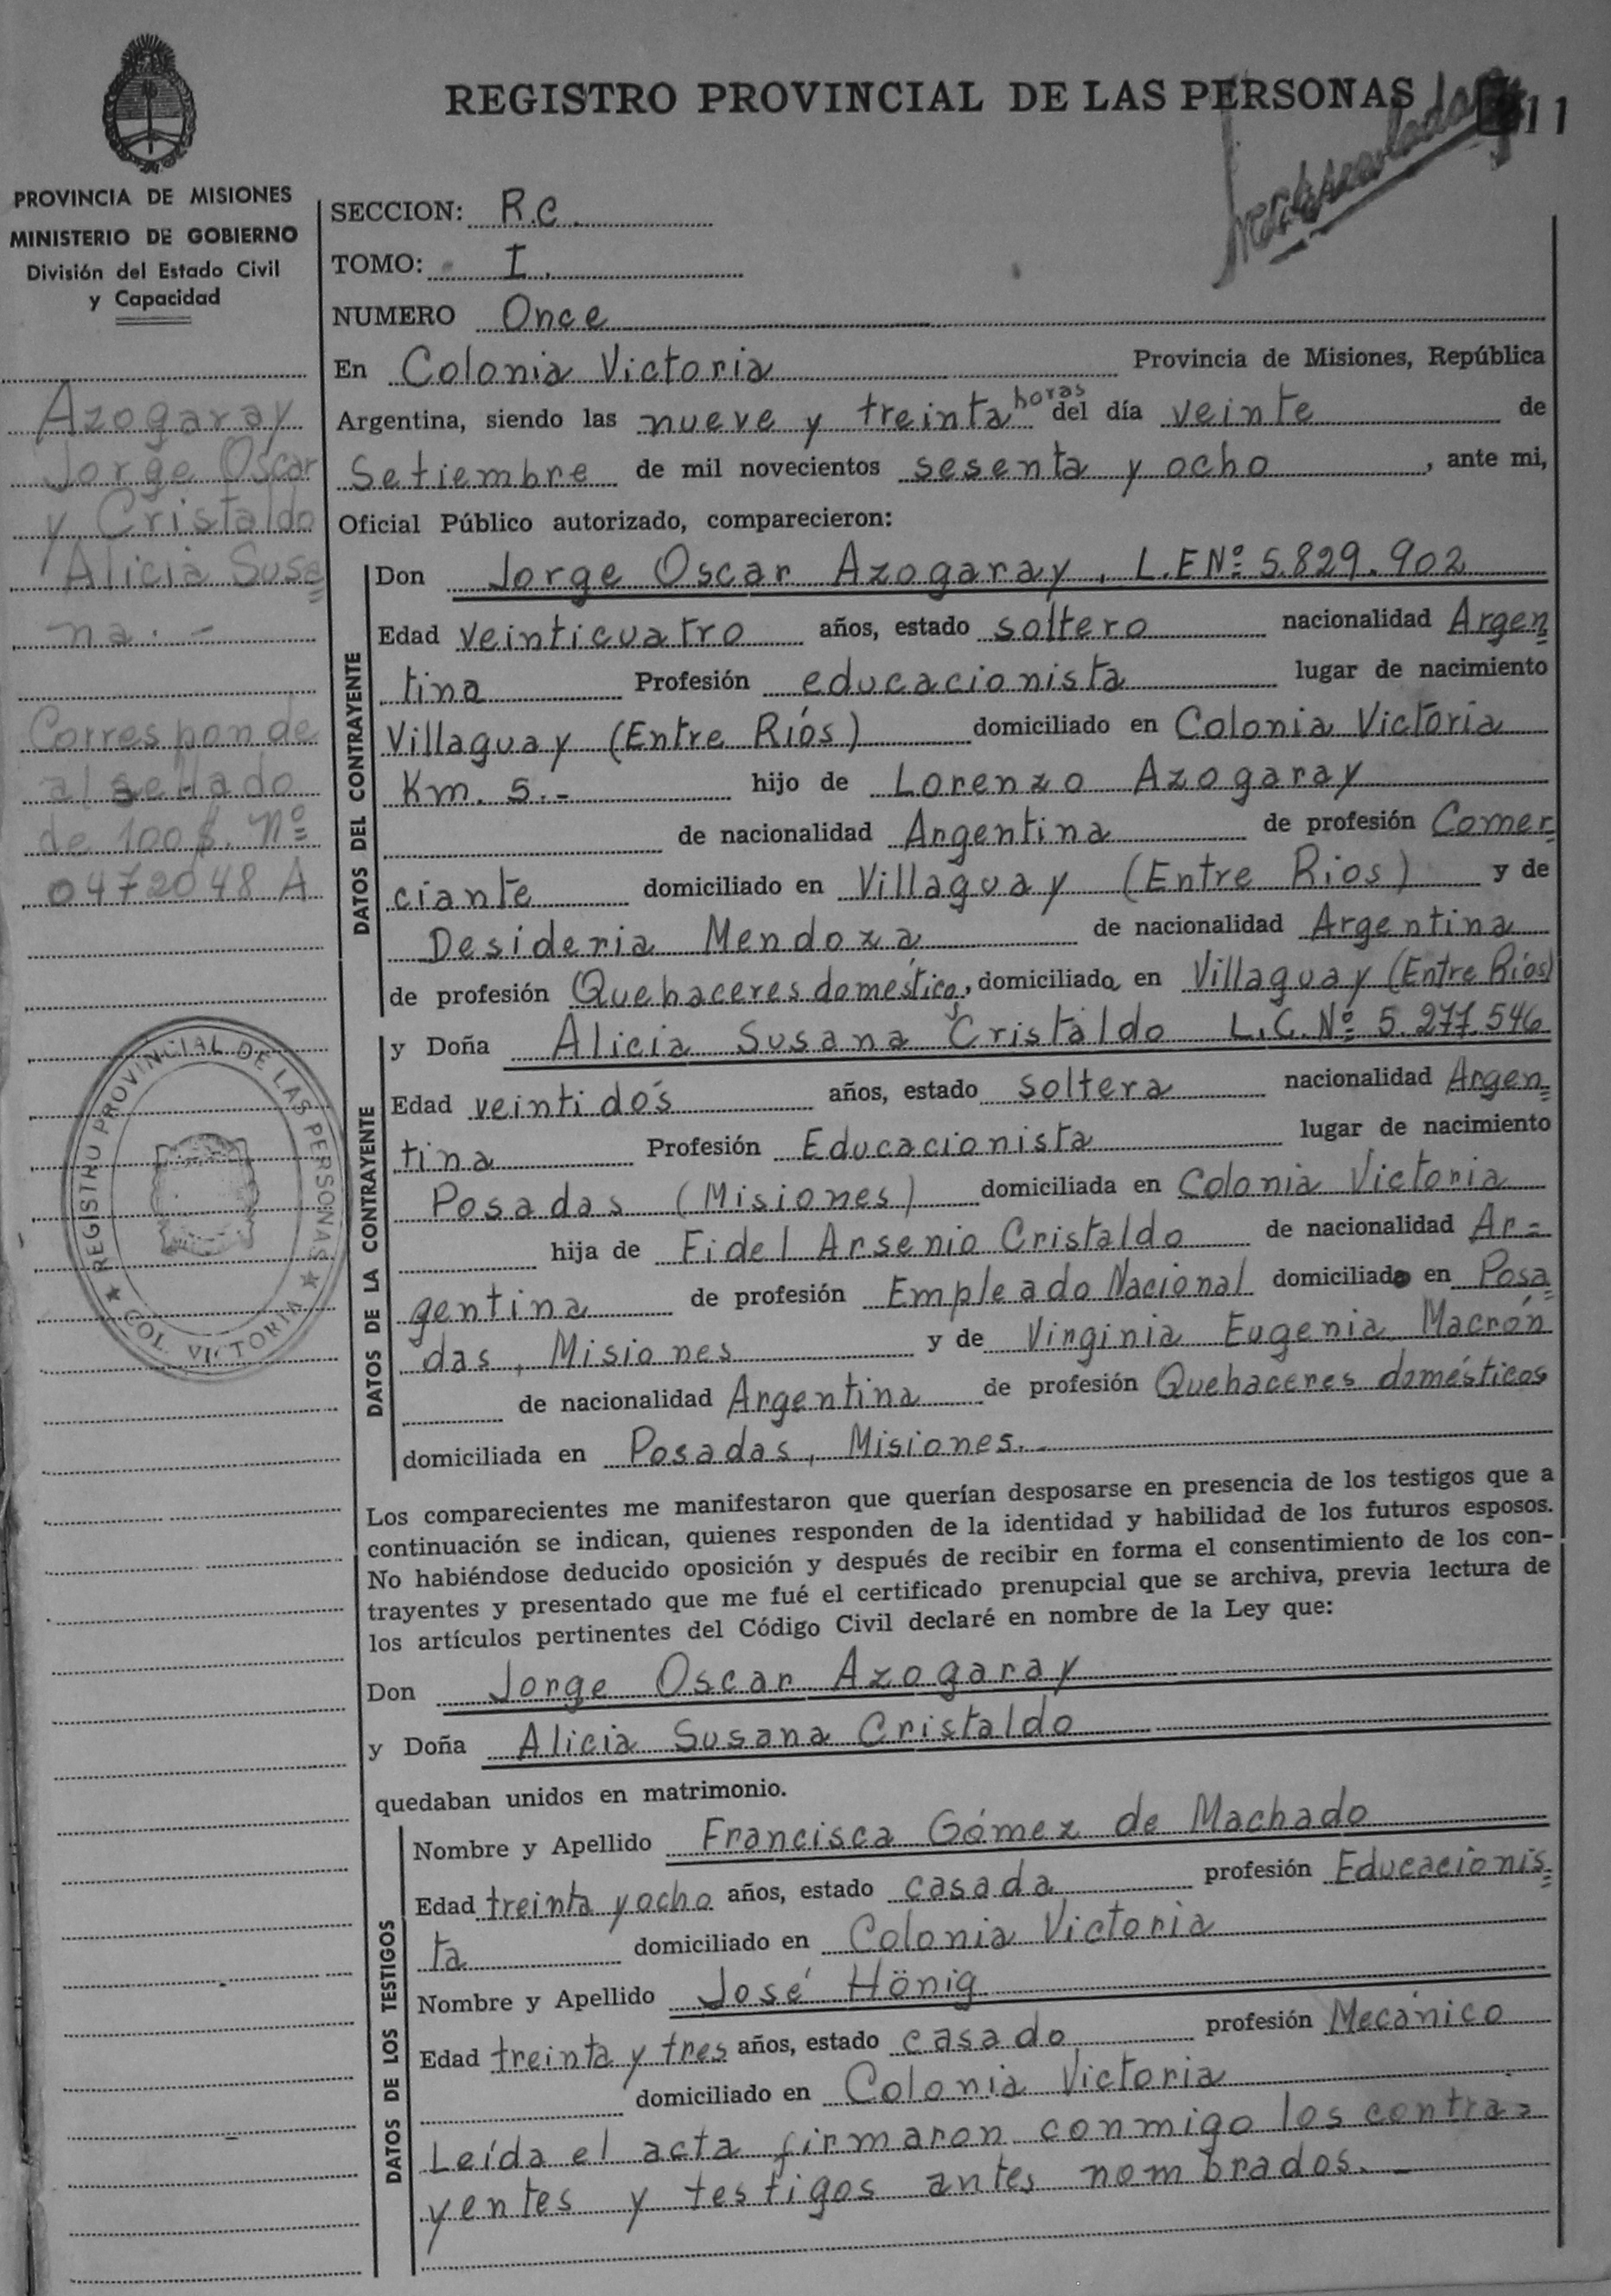 REGISTRO PROVINCIAL DE LAS PERSONAS
11
PROVINCIA DE MISIONES
MINISTERIO DE GOBIERNO
División del Estado Civil
y Capacidad
Azogaray
Jorge Oscar
y Cristaldo
Alicia Susa=
na.-
Corresponde
al sellado
de 100$. Nº
0472048 A
REGISTRO PROVINCIAL DE LAS PERSONAS
★ COL. VICTORIA ★
SECCION: R.C.
TOMO: I.
NUMERO Once
En Colonia Victoria Provincia de Misiones, República
Argentina, siendo las nueve y treinta horas del día veinte de
Setiembre de mil novecientos sesenta y ocho, ante mi,
Oficial Público autorizado, comparecieron:
DATOS DEL CONTRAYENTE
Don Jorge Oscar Azogaray, L.E Nº 5.829.902
Edad veinticuatro años, estado soltero nacionalidad Argen=
tina Profesión educacionista lugar de nacimiento
Villaguay (Entre Ríos) domiciliado en Colonia Victoria
Km. 5.- hijo de Lorenzo Azogaray
de nacionalidad Argentina de profesión Comer=
ciante domiciliado en Villaguay (Entre Rios) y de
Desideria Mendoza de nacionalidad Argentina
de profesión Quehaceres domésticos, domiciliada en Villaguay (Entre Ríos)
DATOS DE LA CONTRAYENTE
y Doña Alicia Susana Cristaldo L.C. Nº 5.277.546
Edad veintidós años, estado soltera nacionalidad Argen=
tina Profesión Educacionista lugar de nacimiento
Posadas (Misiones) domiciliada en Colonia Victoria
hija de Fidel Arsenio Cristaldo de nacionalidad Ar=
gentina de profesión Empleado Nacional domiciliado en Posa=
das, Misiones y de Virginia Eugenia Macrón
de nacionalidad Argentina de profesión Quehaceres domésticos
domiciliada en Posadas, Misiones.-
Los comparecientes me manifestaron que querían desposarse en presencia de los testigos que a
continuación se indican, quienes responden de la identidad y habilidad de los futuros esposos.
No habiéndose deducido oposición y después de recibir en forma el consentimiento de los con-
trayentes y presentado que me fué el certificado prenupcial que se archiva, previa lectura de
los artículos pertinentes del Código Civil declaré en nombre de la Ley que:
Don Jorge Oscar Azogaray
y Doña Alicia Susana Cristaldo
quedaban unidos en matrimonio.
DATOS DE LOS TESTIGOS
Nombre y Apellido Francisca Gómez de Machado
Edad treinta y ocho años, estado casada profesión Educacionis=
ta domiciliado en Colonia Victoria
Nombre y Apellido José Hönig
Edad treinta y tres años, estado casado profesión Mecánico
domiciliado en Colonia Victoria
Leída el acta firmaron conmigo los contra=
yentes y testigos antes nombrados.-